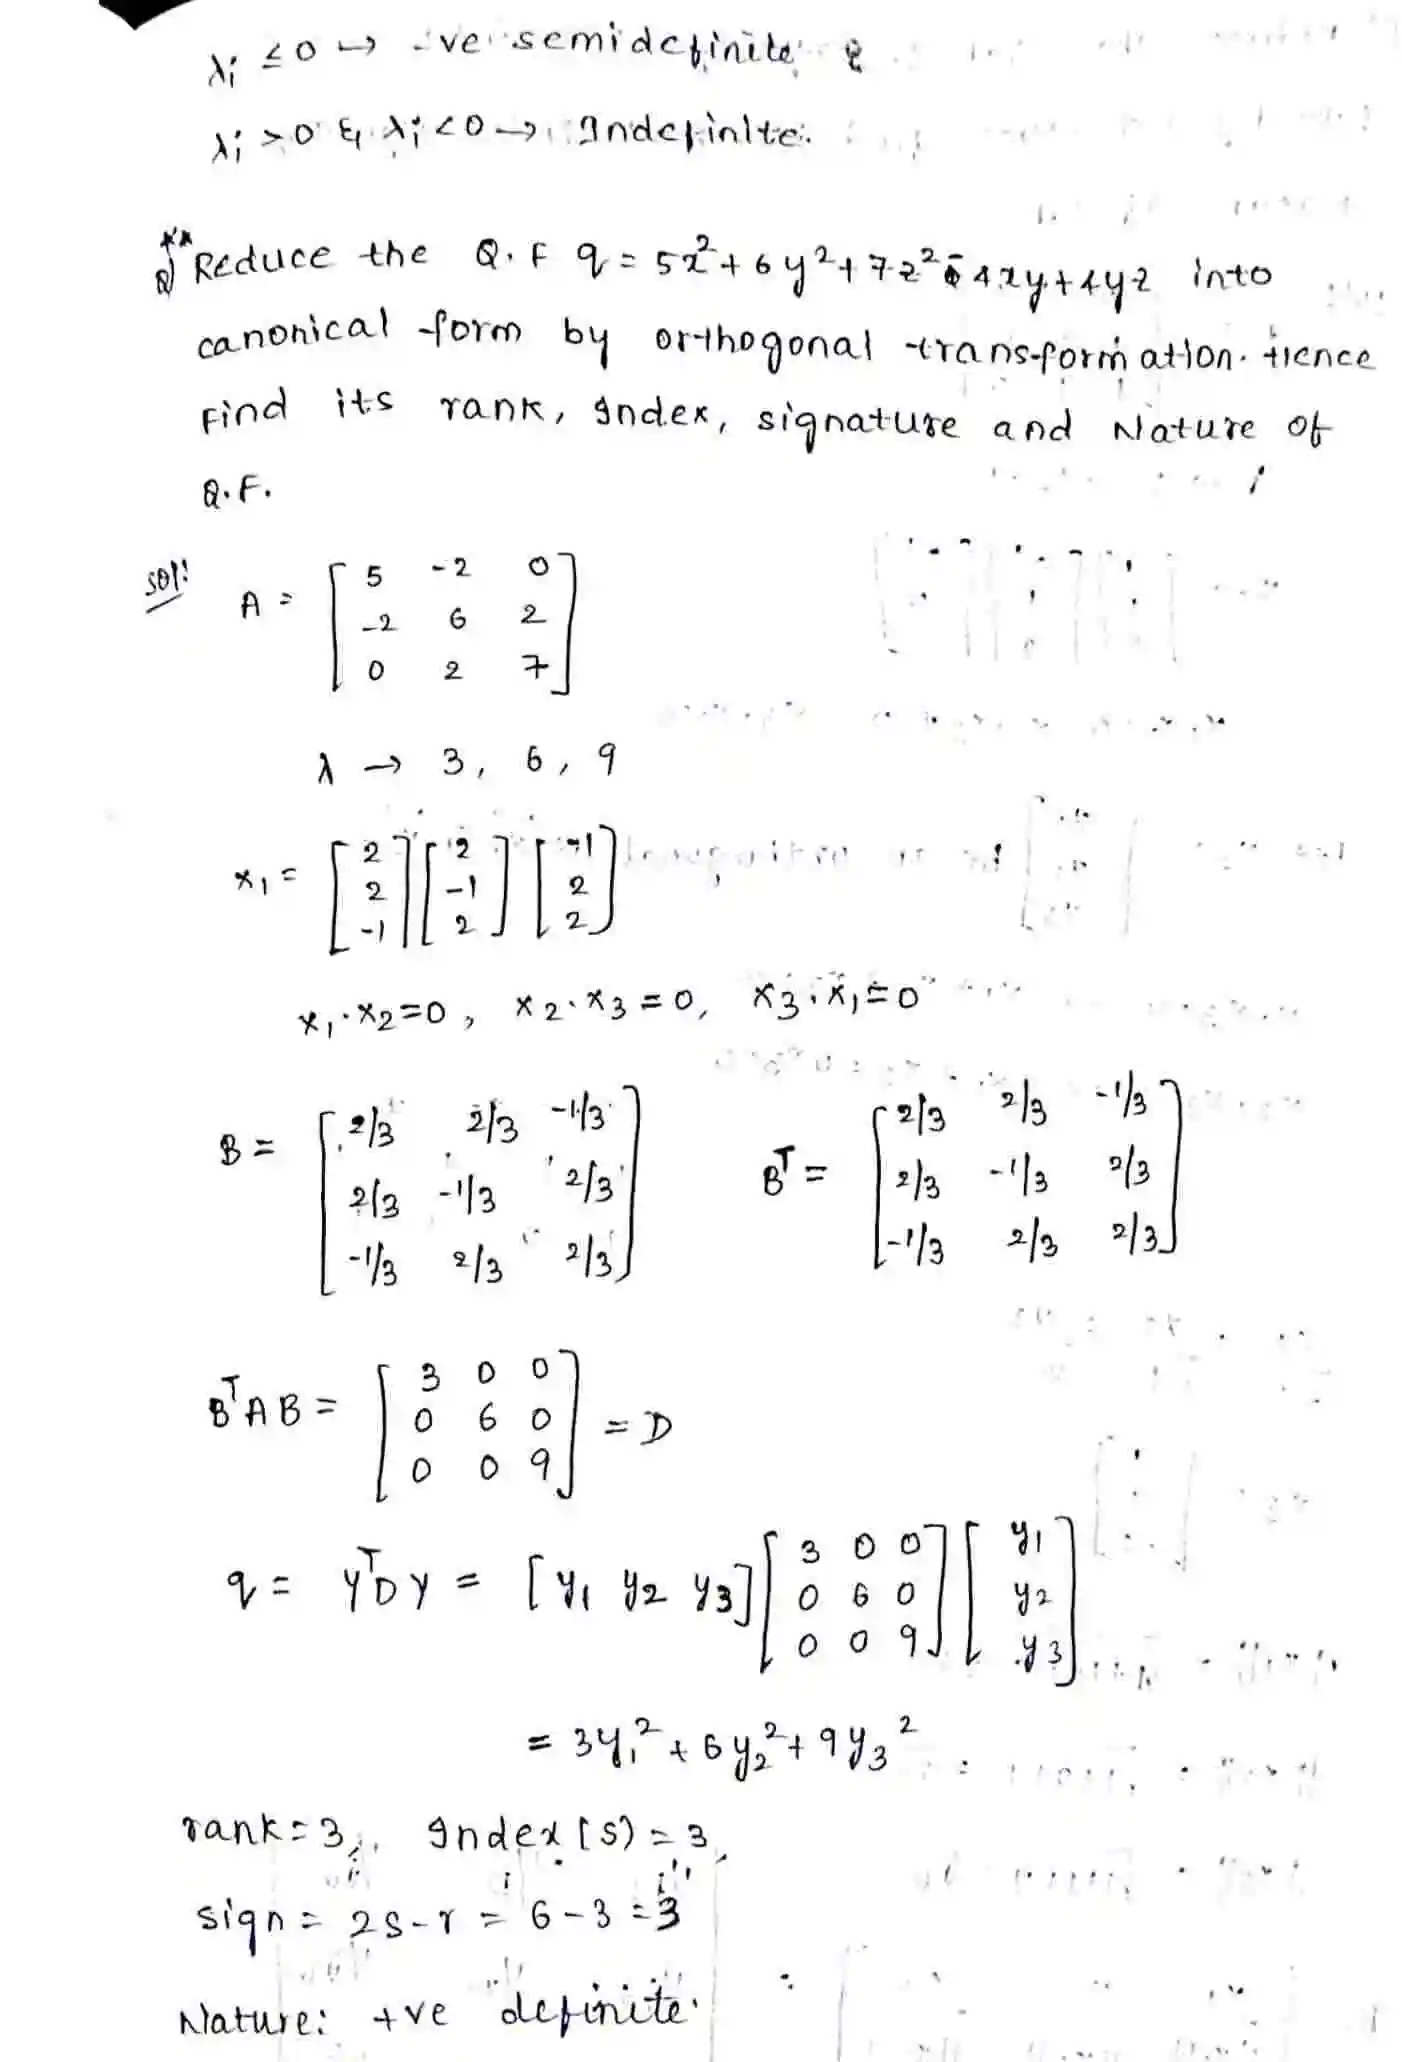 λi ≤0 → -ve semidefinite &
λi >0 & λi <0 → Indefinite.
** Q) Reduce the Q.F q = 5x²+6y²+7z²-4xy+4yz into
canonical form by orthogonal transformation. Hence
Find its rank, Index, signature and Nature of
Q.F.
Sol:
A = [ 5 -2 0
-2 6 2
0 2 7 ]
λ → 3, 6, 9
x₁ = [ 2 2 -1 ] [ 2 -1 2 ] [ -1 2 2 ]
x₁·x₂=0, x₂·x₃=0, x₃·x₁=0
B = [ 2/3 2/3 -1/3 Bᵀ = [ 2/3 2/3 -1/3
2/3 -1/3 2/3 2/3 -1/3 2/3
-1/3 2/3 2/3 ] -1/3 2/3 2/3 ]
BᵀAB = [ 3 0 0
0 6 0
0 0 9 ] = D
q = YᵀDY = [y₁ y₂ y₃] [ 3 0 0 [ y₁
0 6 0 y₂
0 0 9 ] y₃ ]
= 3y₁²+6y₂²+9y₃²
rank=3, Index (s) = 3,
sign = 2s-r = 6-3 =3
Nature: +ve definite.